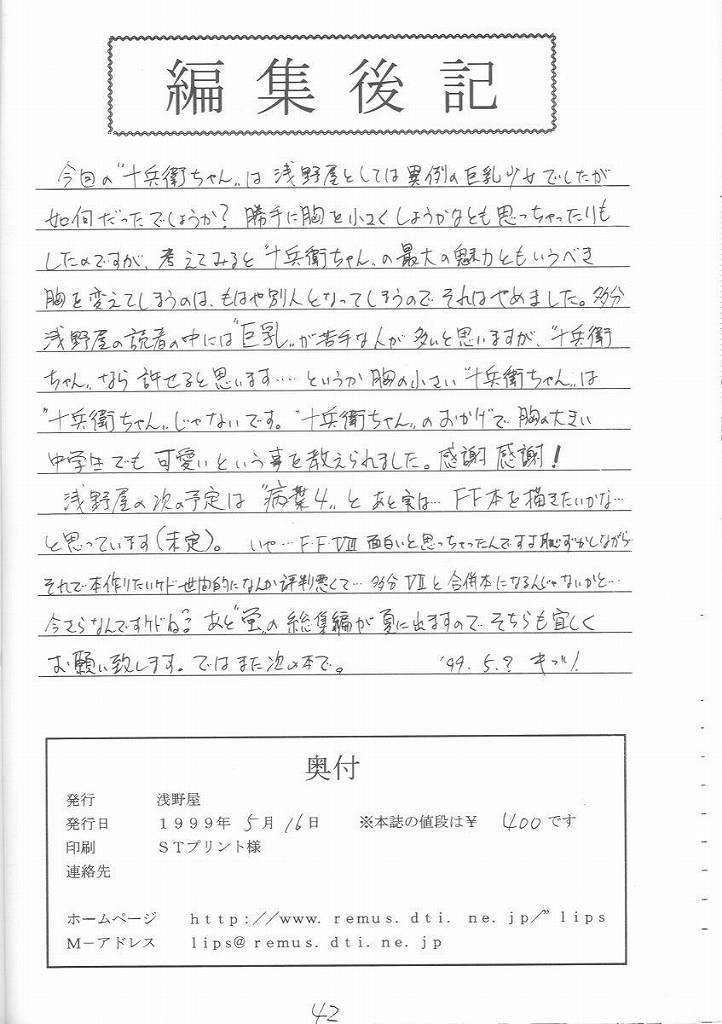 編集後記
今回の"十兵衛ちゃん"は浅野屋としては異例の巨乳少女でしたが
如何だったでしょうか? 勝手に胸を小さくしようかなとも思っちゃったりも
したのですが、考えてみると"十兵衛ちゃん"の最大の魅力ともいうべき
胸を変えてしまうのは、もはや別人となってしまうのでそれはやめました。多分
浅野屋の読者の中には"巨乳"が苦手な人が多いと思いますが、"十兵衛
ちゃん"なら許せると思います‥‥というか胸の小さい"十兵衛ちゃん"は
"十兵衛ちゃん"じゃないです。"十兵衛ちゃん"のおかげで胸の大きい
中学生でも可愛いという事を教えられました。感謝感謝!
浅野屋の次の予定は"病葉4"と あと実は… FF本を描きたいかな…
と思っています(未定)。 いや…F・FⅧ 面白いと思っちゃったんですよ恥ずかしながら
それで本作りたいケド世間的になんか評判悪くて… 多分Ⅶと合併本になるんじゃないかと…
今さらなんですケドね? あと"蛍"の総集編が夏に出ますのでそちらも宜しく
お願い致します。ではまた次の本で。 '99.5.?
奥付
発行 浅野屋
発行日 1999年 5月 16日 ※本誌の値段は¥ 400です
印刷 STプリント様
連絡先
ホームページ http://www.remus.dti.ne.jp/"lips
M-アドレス lips@remus.dti.ne.jp
42